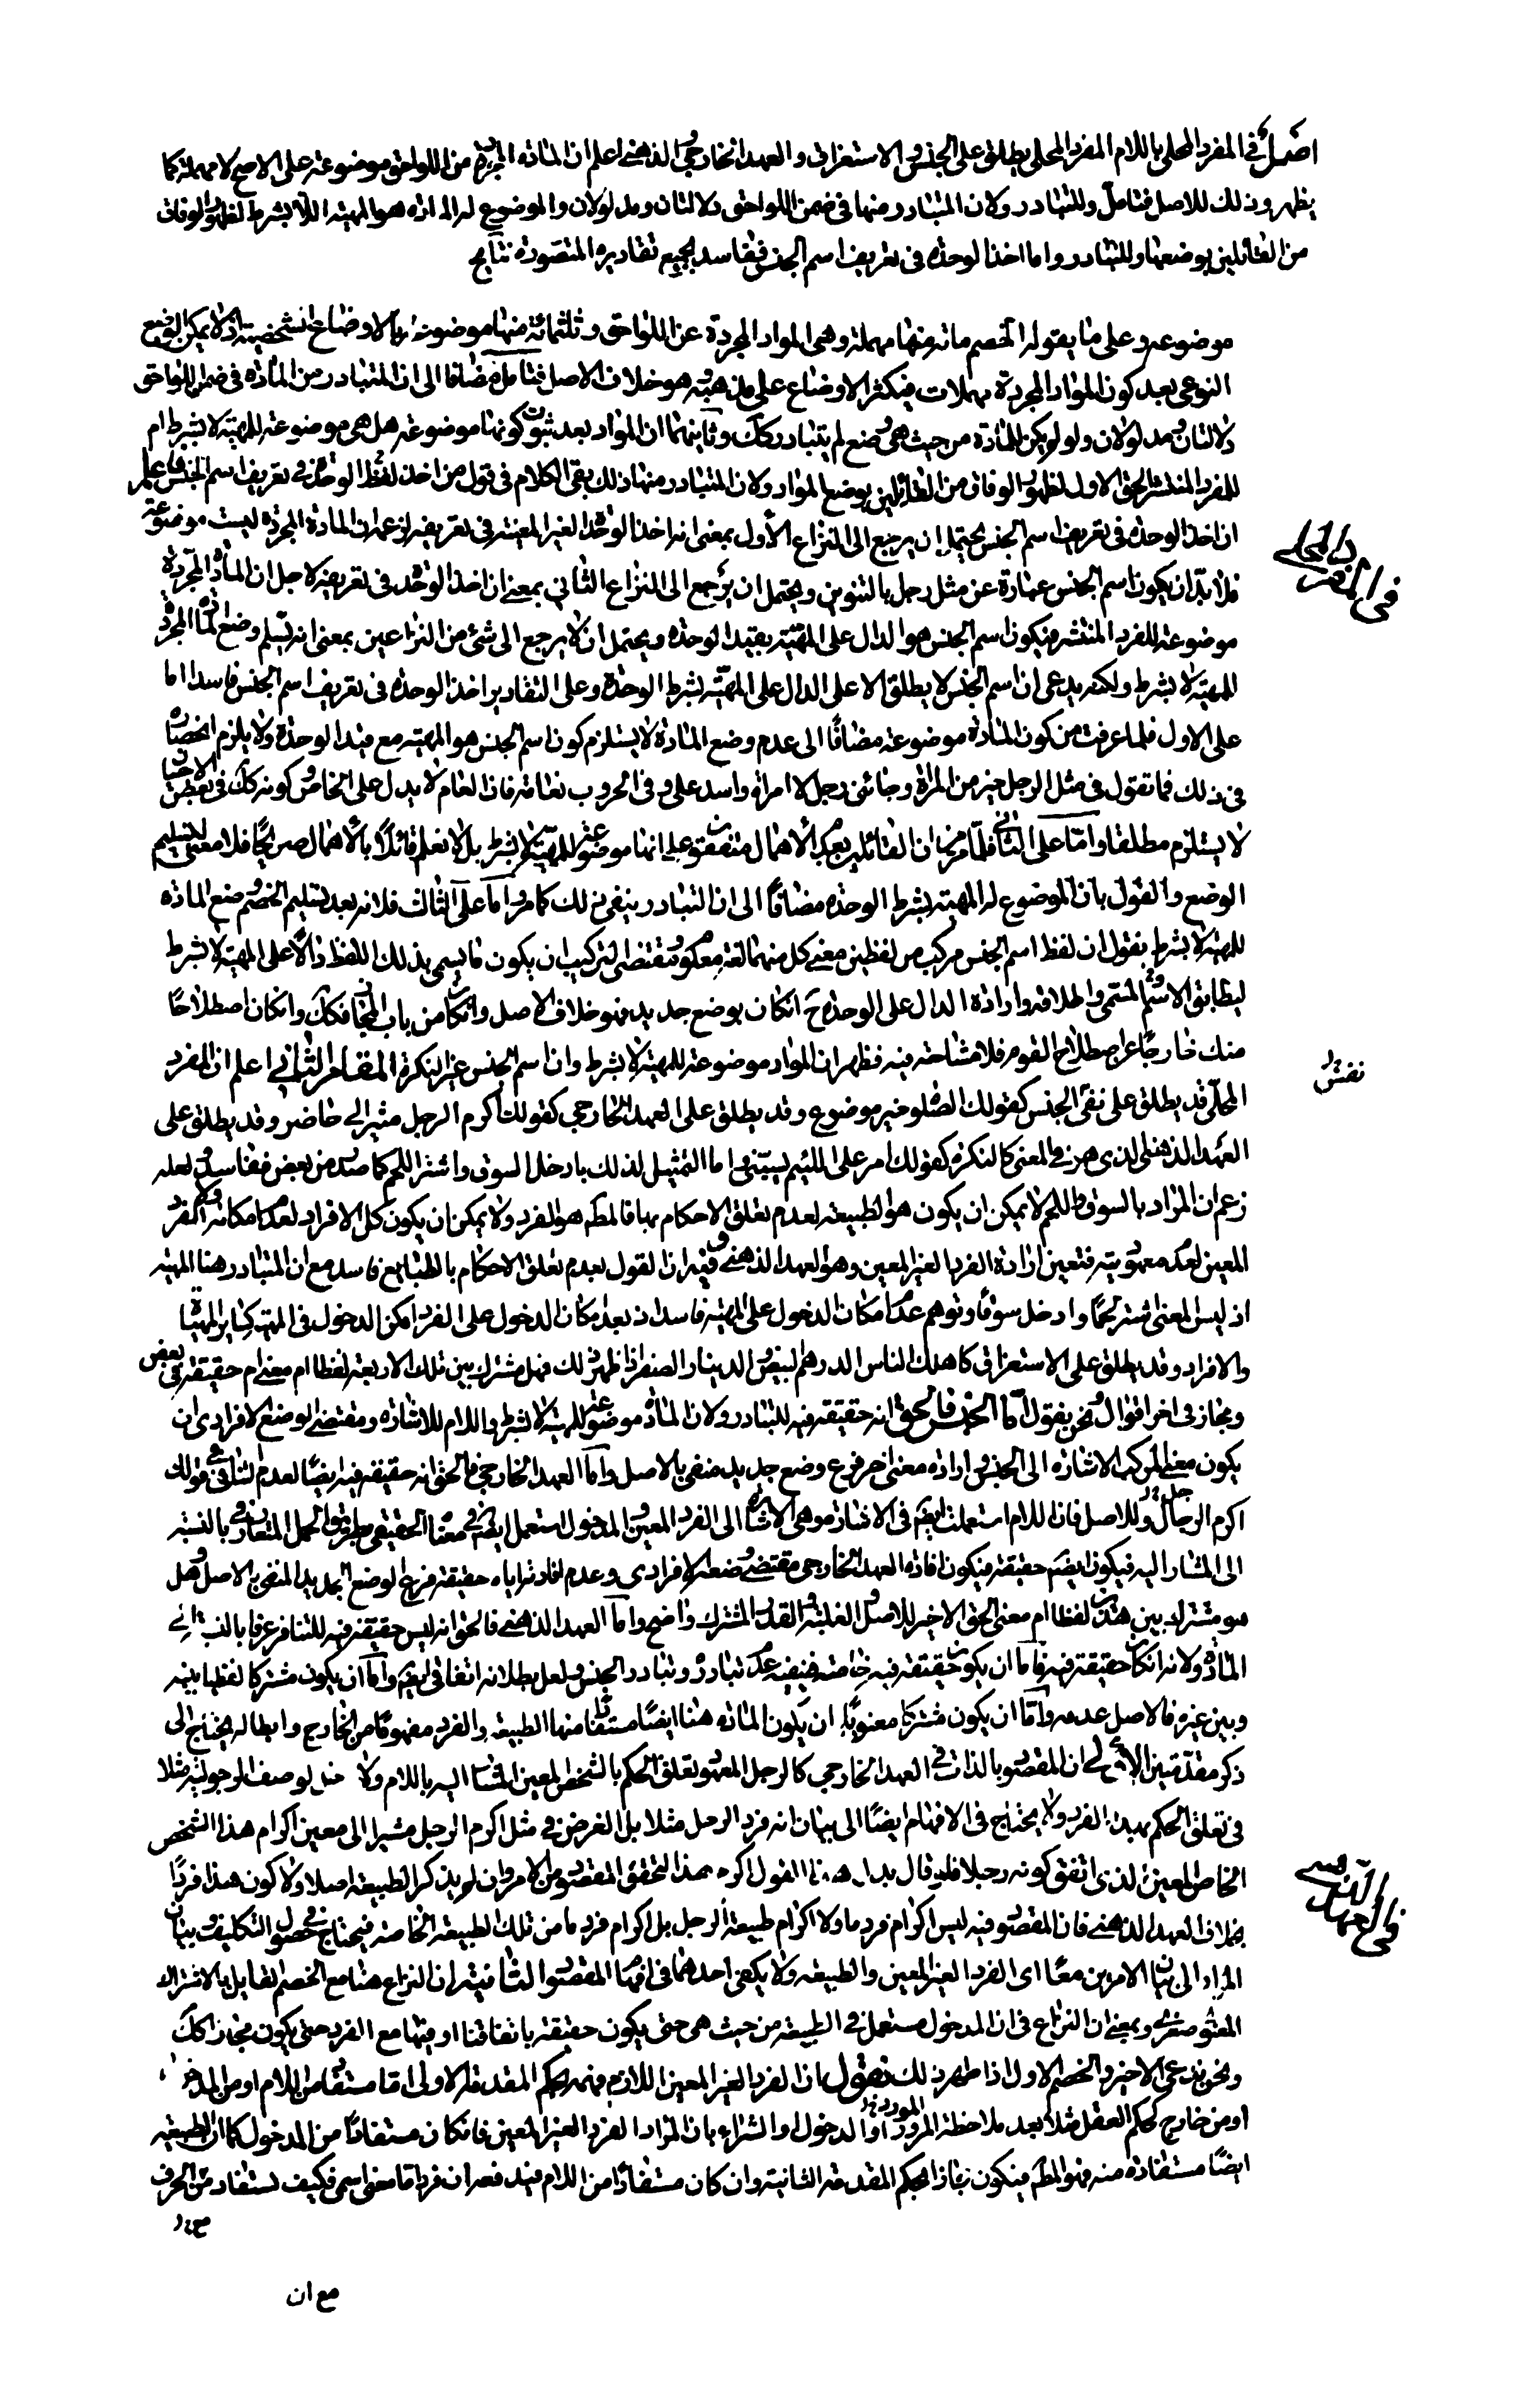 اصل في المفرد المحلى باللام المفرد المحلى يطلق على الجنس والاستغراق والعهد الخارجي والذهني اعلم ان المادة المجردة من اللواحق موضوعة على الاصح لا مهملة كما
يظهر وذلك للاصل فتامل وللتبادر ولان المتبادر منها في ضمن اللواحق دلالتان ومدلولان والموضوع له المادة هو المهية اللا بشرط لظهور الوفاق
من القائلين بوضعها وللتبادر واما اخذ الوحدة في تعريف اسم الجنس ففاسد بجميع تقاديره المتصورة
موضوعة وعلى ما يقوله الخصم مائة منها مهملة وهي المواد المجردة عن اللواحق وثلثمائة منها موضوعة بالاوضاع الشخصية اذ لا يمكن الوضع
النوعي بعد كون المواد المجردة مهملات فيكثر الاوضاع على مذهبه وهو خلاف الاصل فتامل مضافا الى ان المتبادر من المادة في ضمن اللواحق
دلالتان ومدلولان ولو لم يكن للمادة من حيث هي وضع لم يتبادر كك وثانيهما ان المواد بعد ثبوت كونها موضوعة هل هي موضوعة للمهية لا بشرط ام
للفرد المنتشر الحق الاول لظهور الوفاق من القائلين بوضع المواد ولان المتبادر منها ذلك بقي الكلام في قول من اخذ لفظ الوحدة في تعريف اسم الجنس فاعلم
ان اخذ الوحدة في تعريف اسم الجنس يحتمل ان يرجع الى النزاع الاول بمعنى انه اخذ الوحدة الغير المعينة في تعريفه لزعمه ان المادة المجردة ليست موضوعة
فلا بد ان يكون اسم الجنس عبارة عن مثل رجل بالتنوين ويحتمل ان يرجع الى النزاع الثاني بمعنى ان اخذ الوحدة في تعريفه لاجل ان المادة المجردة
موضوعة للفرد المنتشر فيكون اسم الجنس هو الدال على المهية بقيد الوحدة ويحتمل ان لا يرجع الى شئ من النزاعين بمعنى انه يسلم وضع المادة المجردة
للمهية لا بشرط ولكنه يدعى ان اسم الجنس لا يطلق الا على الدال على المهية بشرط الوحدة وعلى التقادير اخذ الوحدة في تعريف اسم الجنس فاسد اما
على الاول فلما عرفت من كون المادة موضوعة مضافا الى عدم وضع المادة لا يستلزم كون اسم الجنس هو المهية مع قيد الوحدة ولا يلزم انحصاره
في ذلك فما تقول في مثل الرجل خير من المراة وجائني رجل لا امراة واسد علي وفي الحروب نعامة فان العام لا يدل على الخاص وكونه كك في بعض الاحيان
لا يستلزم مطلقا واما على الثاني فلما مر من ان القائلين بعدم الاهمال متفقون على انها موضوعة للمهية لا بشرط بل لا نعلم قائلا بالاهمال صريحا فلا معنى لتسليم
الوضع والقول بان الموضوع له المهية بشرط الوحدة مضافا الى ان التبادر ينفي ذلك كما مر واما على الثالث فلانه بعد تسليم الخصم وضع المادة
للمهية لا بشرط نقول ان لفظ اسم الجنس مركب من لفظين معنى كل منهما لغة معلوم ومقتضى التركيب ان يكون ما يسمى بذلك اللفظ دالا على المهية لا بشرط
ليطابق الاسم المسمى واطلاقه وارادة الدال على الوحدة ح ان كان بوضع جديد فهو خلاف الاصل وان كان من باب المجاز فكك وان كان اصطلاحا
منك خارجا عن اصطلاح القوم فلا مشاحة فيه فظهر ان المواد موضوعة للمهية لا بشرط وان اسم الجنس غير النكرة المقام الثاني اعلم ان المفرد
المحلى قد يطلق على نفس الجنس كقولك الصلوة خير موضوع وقد يطلق على العهد الخارجي كقولك اكرم الرجل مشيرا الى حاضر وقد يطلق على
العهد الذهني الذي هو في المعنى كالنكرة كقولك امر على اللئيم يسبني واما التمثيل لذلك بادخل السوق واشتر اللحم كما صدر من بعض ففاسد ولعله
زعم ان المراد بالسوق واللحم لا يمكن ان يكون هو الطبيعة لعدم تعلق الاحكام بها فالمط هو الفرد ولا يمكن ان يكون كل الافراد لعدم امكانه ولا الفرد
المعين لعدم معهوديته فتعين ارادة الفرد الغير المعين وهو العهد الذهني وفيه ان القول بعدم تعلق الاحكام بالطبايع فاسد مع ان المتبادر هنا المهية
اذ ليس المعنى اشتر لحما وادخل سوقا وتوهم عدم امكان الدخول على المهية فاسد اذ بعد امكان الدخول على الفرد امكن الدخول في المهية
والافراد وقد يطلق على الاستغراق كاهلك الناس الدرهم البيض والدينار الصفر اذا ظهر ذلك فهل مشترك بين تلك الاربعة لفظا ام معنى ام حقيقة في بعض
ومجاز في اخر اقوال ونحن نقول اما الجنس فالحق انه حقيقة فيه للتبادر ولان المادة موضوعة للمهية لا بشرط واللام للاشارة ومقتضى الوضع الافرادي ان
يكون معنى المركب الاشارة الى الجنس وارادة معنى اخر فرع وضع جديد منفي بالاصل واما العهد الخارجي فالحق انه حقيقة فيه ايضا لعدم التنافي في قولك
اكرم الرجال وللاصل فان اللام استعملت ايض في الاشارة وهي الاشارة الى الفرد المعين والمدخول استعمل ايض في معناه الحقيقي بطريق الحمل المتعارف بالنسبة
الى المشار اليه فيكون ايض حقيقة فيكون افادة العهد الخارجي مقتضى وضعه الافرادي وعدم افادته اياه حقيقة فرع الوضع الجديد المنفي بالاصل وهل
هو مشترك بين هذين لفظا ام معنى الحق الاخير للاصل والغلبة والقدر المشترك واضح واما العهد الذهني فالحق انه ليس حقيقة فيه للتنافر عرفا بالنسبة الى
المادة ولانه ان كان حقيقة فيه فاما ان يكون حقيقة فيه خاصة فينفيه عدم تبادره وتبادر الجنس ولعل بطلانه اتفاقي ايض واما ان يكون مشتركا لفظيا بينه
وبين غيره فالاصل عدمه واما ان يكون مشتركا معنويا ان يكون المادة هنا ايضا مستفادا منها الطبيعة والفرد مفهوما من الخارج وابطاله يحتاج الى
ذكر مقدمتين الاولى ان المقصود بالذات في العهد الخارجي كالرجل المعهود تعلق الحكم بالشخص المعين المشار اليه باللام ولا مدخل لوصف الرجولية مثلا
في تعلق الحكم بهذا الفرد ولا يحتاج في الافهام ايضا الى بيان انه فرد الرجل مثلا بل الغرض في مثل اكرم الرجل مشيرا الى معين اكرام هذا الشخص
الخاص المعين الذي اتفق كونه رجلا فلو قال بدل هذا القول اكرم هذا لتحقق المقصود من الامر وان لم يذكر الطبيعة اصلا ولا كون هذا فردا
بخلاف العهد الذهني فان المقصود فيه ليس اكرام فرد ما ولا اكرام طبيعة الرجل بل اكرام فرد ما من تلك الطبيعة الخاصة فيحتاج في حصول التكليف وبيان
المراد الى بيان الامرين معا اى الفرد الغير المعين والطبيعة ولا يكفي احدهما في افهام المقصود الثانية ان النزاع هنا مع الخصم القايل بالاشتراك
المعنوي صغروي بمعنى ان النزاع في ان المدخول مستعمل في الطبيعة من حيث هي حتى يكون حقيقة باتفاقنا او فيها مع الفرد حتى يكون مجازا كك
ونحن ندعي الاخير والخصم الاول اذا ظهر ذلك نقول ان الفرد الغير المعين اللازم فهمه بحكم المقدمة الاولى اما مستفاد من اللام او من المدخول
او من خارج كحكم العقل مثلا بعد ملاحظة المرور او الدخول والشراء بان المراد الفرد الغير المعين فان كان مستفادا من المدخول كما ان الطبيعة
ايضا مستفادة منه فهو المط فيكون مجازا بحكم المقدمة الثانية وان كان مستفادا من اللام فيه ان فردا ما معنى اسمي فكيف يستفاد من الحرف
مع ان
في المفرد المحلى
نفس
في العهد الذهني